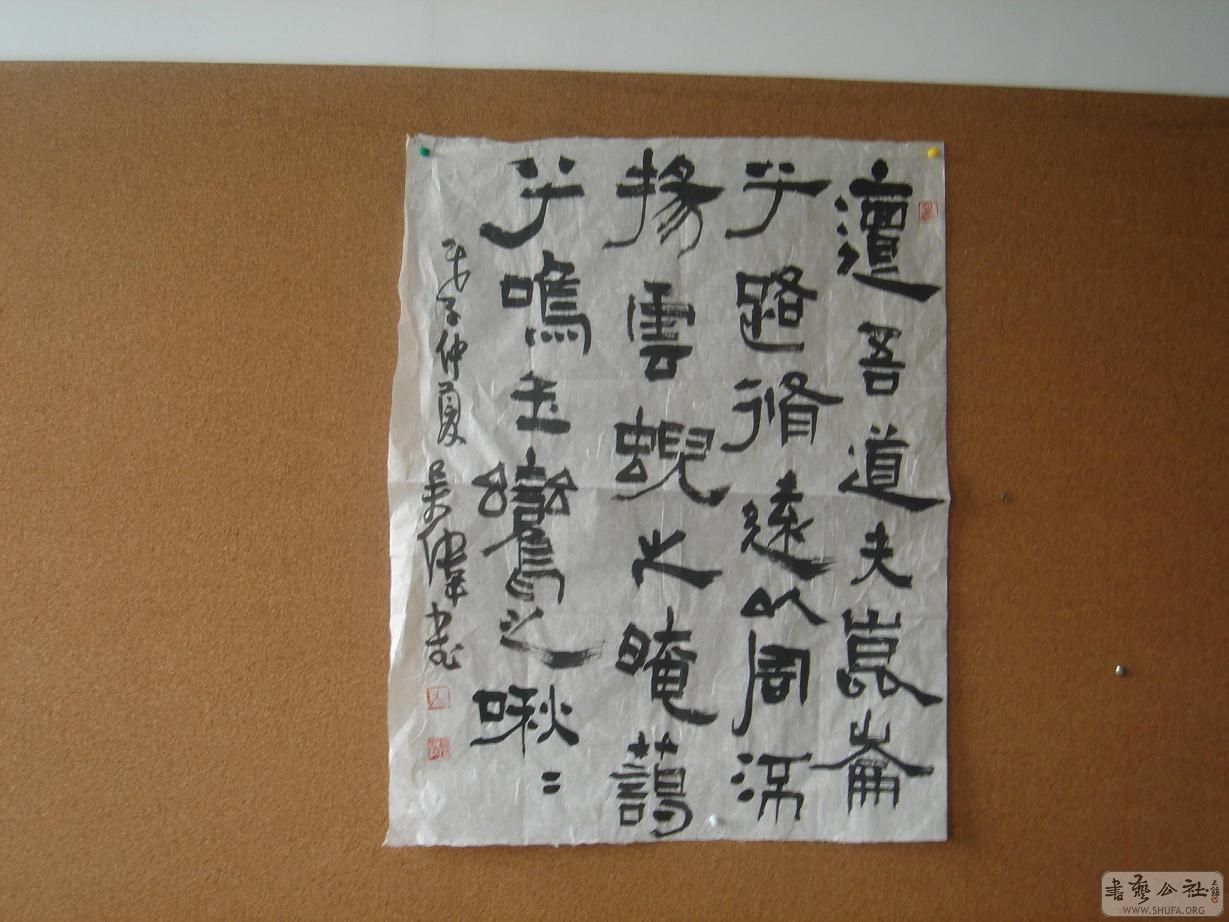 邅吾道夫崑崙
兮路脩遠以周流
揚雲蜺之晻藹
兮鳴玉鸞之啾々
戊子仲夏 吴偉書
書藝公社
WWW.SHUFA.ORG